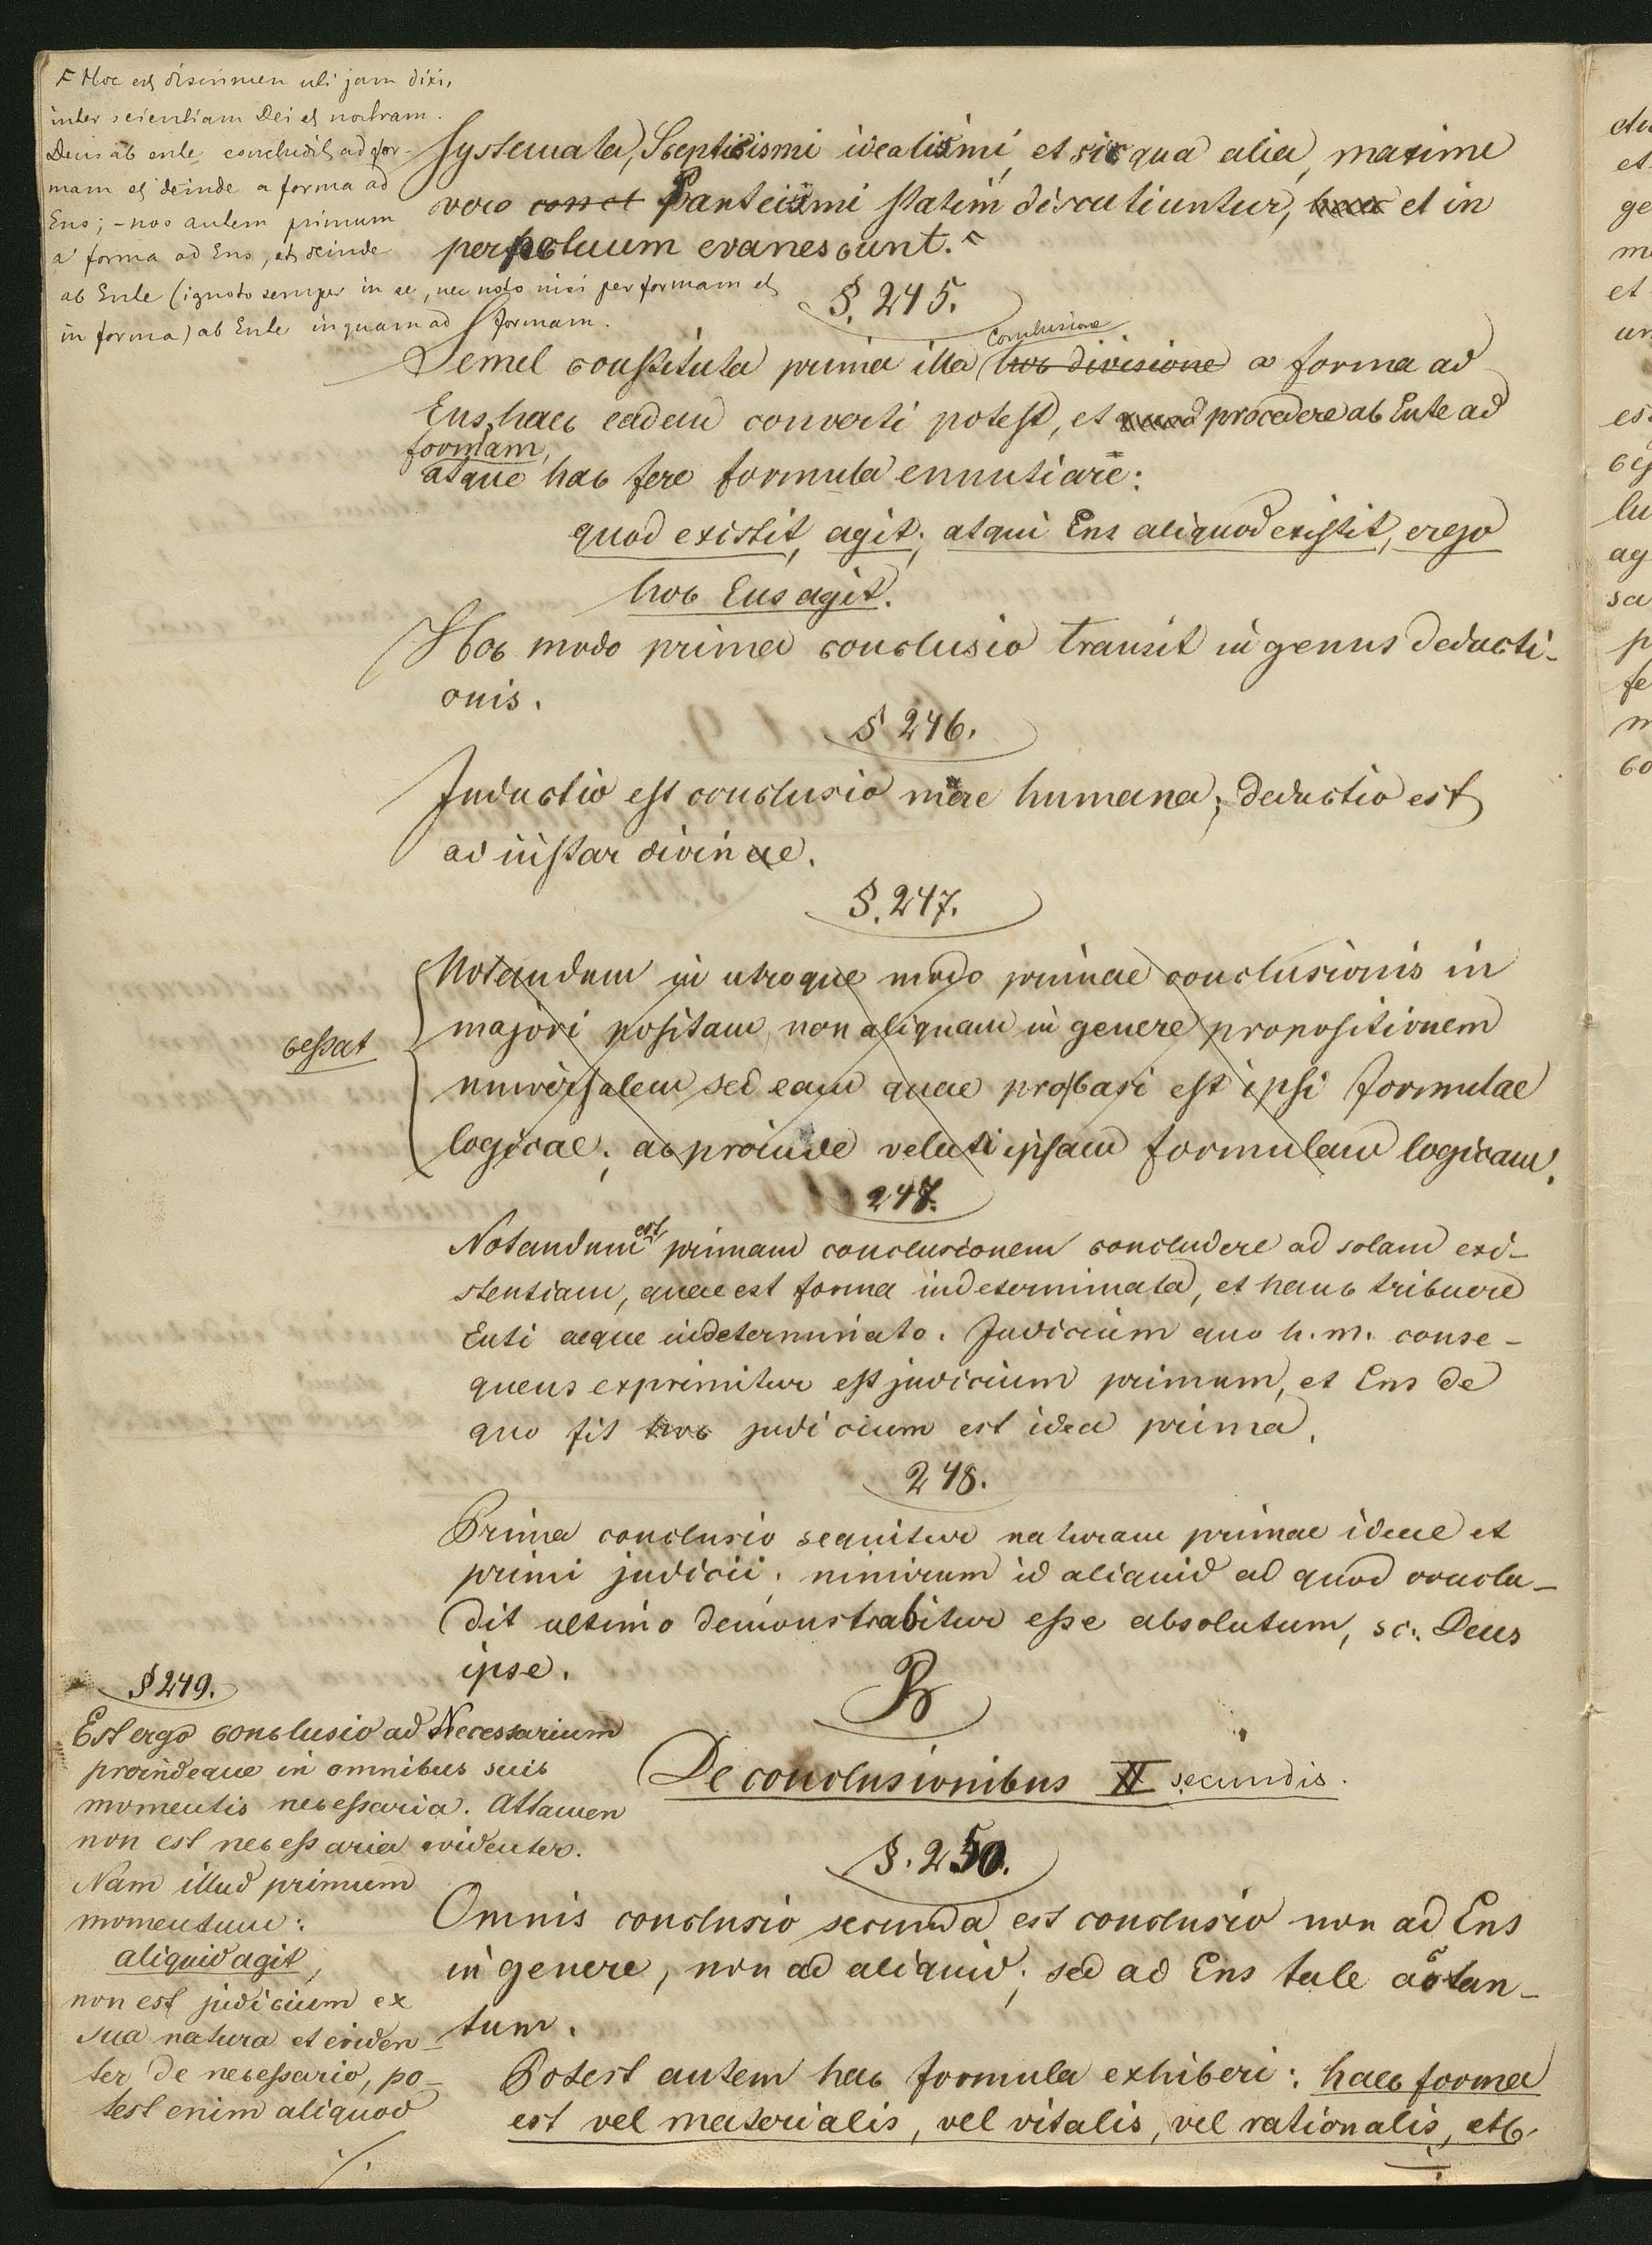 ⌃ Hoc est discrimen uti jam dixi,
inter scientiam Dei et nostram.
Deus ab ente concludit ad for-
mam et deinde a forma ad
Ens; - nos autem primum
a forma ad Ens, et deinde
ab Ente (ignoto semper in se, nec noto nisi per formam et
in forma) ab Ente inquam ad formam.
Systemata, Scepticismi idealismi, et si qua alia, maxime
vero Panteismi statim discutiuntur, et in
perpetuum evanescunt. ⌃
§. 245.
Conclusione
Semel constituta prima illa hoc divisione a forma ad
Ens, haec eadem converti potest, et quod procedere ab Ente ad
formam,
atque hac fere formula ennutiare:
quod existit, agit; atqui Ens aliquod existit, ergo
hoc Ens agit.
Hoc modo prima conclusio transit in genus deducti-
onis.
§ 246.
Inductio est conclusio mere humana; deductio est
ad instar divinae.
§. 247.
Notandum in utroque modo primae conclusionis in
majori positam non aliquam in genere propositionem
cessat
universalem sed eam quae probari est ipsi formulae
logicae; ac proinde veluti ipsam formulam logicam.
247.
Notandum est primam conclusionem concludere ad solam exi-
stentiam, quae est forma indeterminata, et hanc tribuere
Enti aeque indeterminato. Judicium quo h. m. conse-
quens exprimitur est judicium primum, et Ens de
quo fit hoc judicium est idea prima.
248.
Prima conclusio sequitur naturam primae ideae et
primi judicii. nimirum id aliquid ad quod conclu-
dit ultimo demonstrabitur esse absolutum, sc. Deus
ipse.
§ 249.
Est ergo conclusio ad Necessarium
proindeque in omnibus suis
momentis necessaria. Attamen
non est necessaria evidenter.
Nam illud primum
momentum:
aliquid agit,
non est judicium ex
sua natura et eviden-
ter de necessario, po-
test enim aliquod
./.
B
De conclusionibus II secundis.
§. 250.
Omnis conclusio secunda est conclusio non ad Ens
in genere, non ad aliquid; sed ad Ens tale aut tan-
tum.
Potest autem hac formula exhiberi: haec forma
est vel materialis, vel vitalis, vel rationalis, etc.